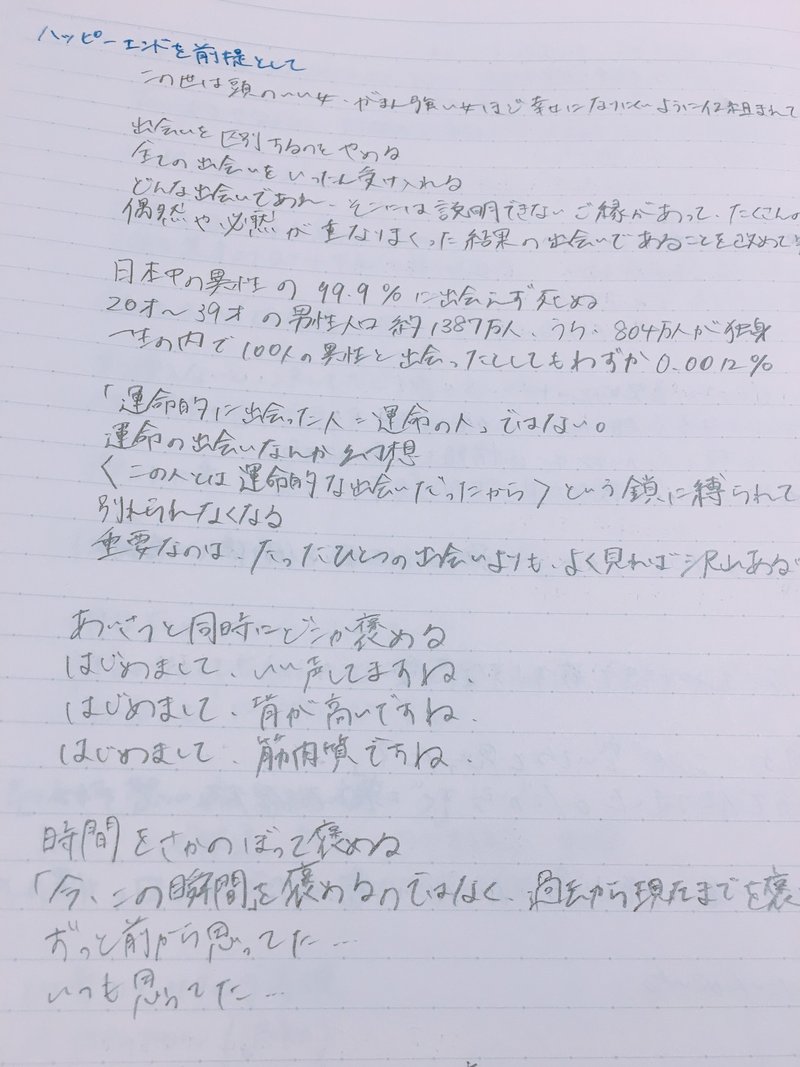 ハッピーエンドを前提として
この世は頭のいい女、がまん強い女ほど幸せになりにくいように仕組まれて
出会いを区別するのをやめる
全ての出会いをいったん受け入れる
どんな出会いであれ、そこには説明できないご縁があって、たくさんの
偶然や必然が重なりまくった結果の出会いであることを改めて
日本中の異性の99.9%に出会えず死ぬ
20才〜39才の男性人口約1387万人、うち、804万人が独身
一生の内で100人の異性と出会ったとしてもわずか0.0012%
「運命的に出会った人=運命の人」ではない。
運命の出会いなんか幻想
〈この人とは運命的な出会いだったから〉という鎖に縛られて
別れられなくなる
重要なのは、たったひとつの出会いよりも、よく見れば沢山ある
あいさつと同時にどこか褒める
はじめまして、いい声してますね、
はじめまして、背が高いですね、
はじめまして、筋肉質ですね、
時間をさかのぼって褒める
「今、この瞬間」を褒めるのではなく、過去から現在までを褒
ずっと前から思ってた…
いつも思ってた…